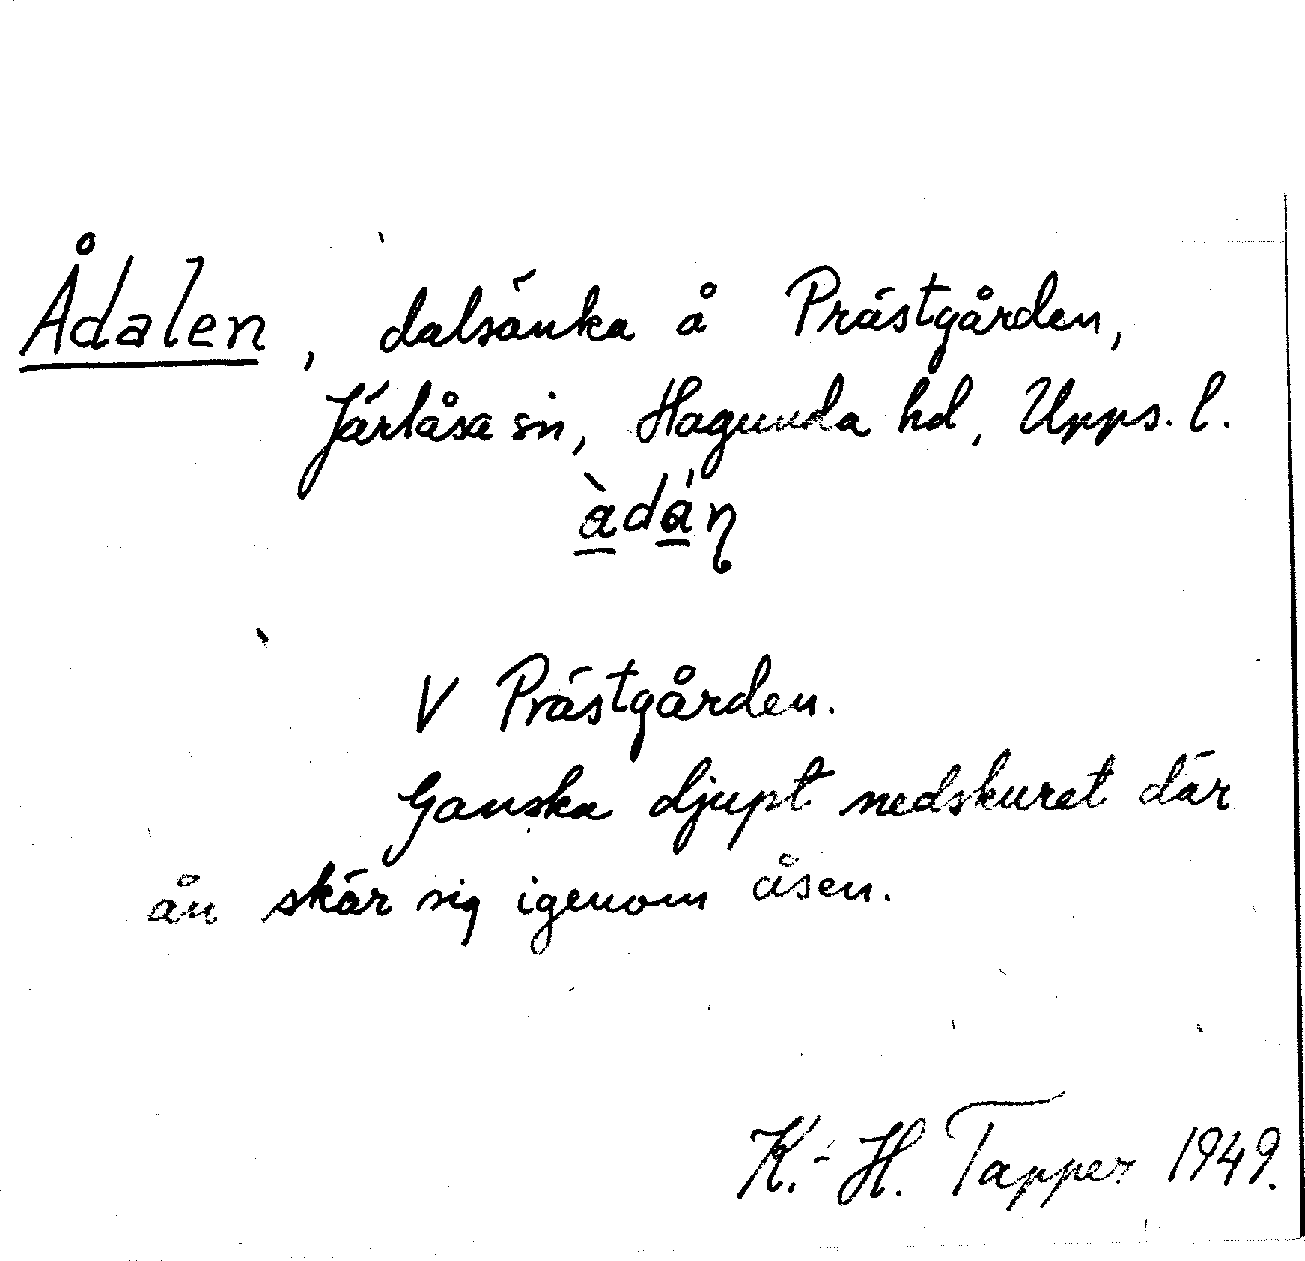 Ådalen, dalsänka å Prästgården,
Järlåsa sn, Hagunda hd, Upps. l.
à̱dá̱ņ
V Prästgården.
Ganska djupt nedskuret där
ån skär sig igenom åsen.
K.-H. Tapper 1949.